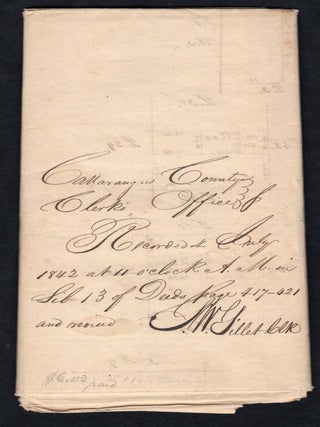 Cattaraugus County
Clerk's Office
Recorded 4 July
1842 at 11 o'clock A. M. in
Lib 13 of Deeds Page 417-421
and
Gillet Clk
paid